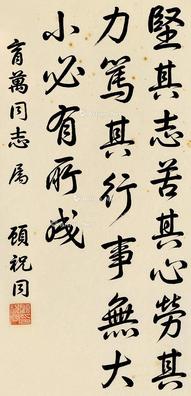 堅其志苦其心勞其
力篤其行事無大
小必有所成
育萬同志屬
顧祝同